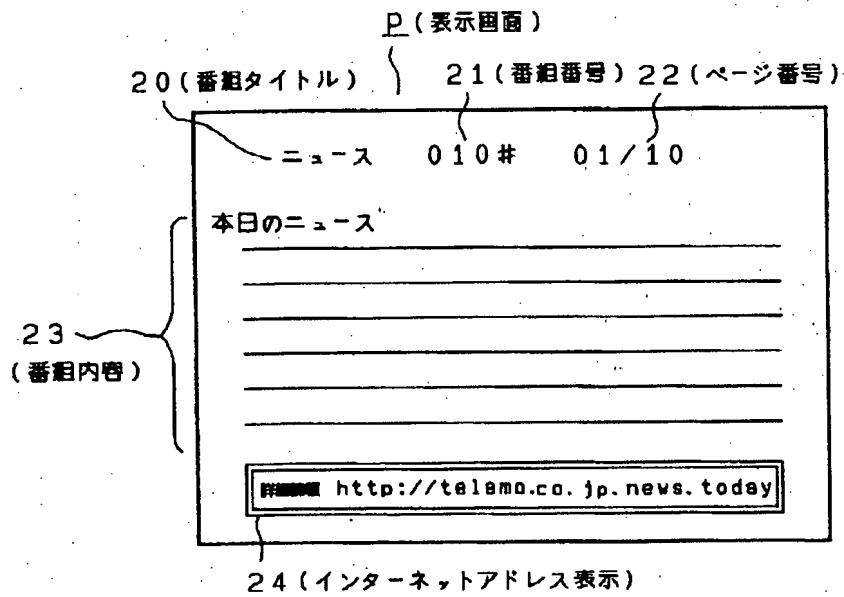 P(表示画面)
20(番組タイトル) 21(番組番号) 22(ページ番号)
ニュース 010# 01/10
本日のニュース
23
(番組内容)
http://telemo.co.jp.news.today
24(インターネットアドレス表示)